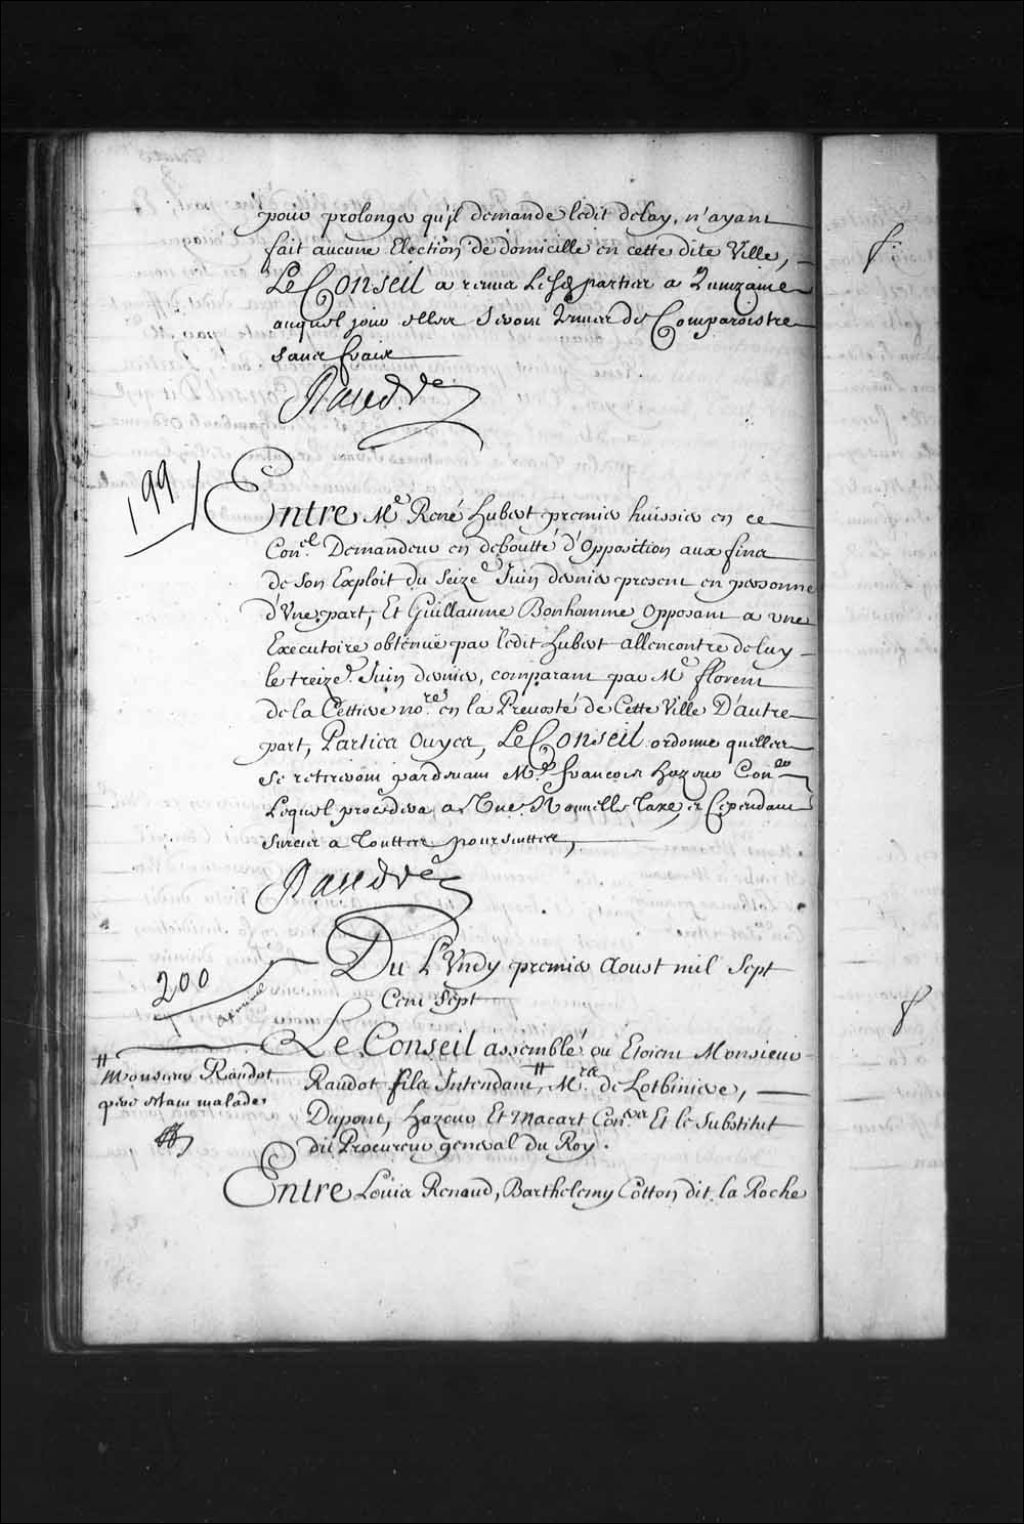 pour prolonger qu'jl demande ledit delay, n'ayant
fait aucune Election de domicille en cette dite Ville,
Le Conseil a remis Lesd. parties a Quinzaine
auquel jour elles seront tenues de Comparoistre
sans fraix
Raudot
199
Entre Me René hubert premier huissier en ce
Conel Demandeur en deboutté d'opposition aux fins
de son Exploit du seize Juin dernier present en personne
d'Vne part, Et Guillaume Bonhomme opposant a vne
Executoire obtenüe par ledit hubert allencontre de luy
le treize Juin dernier, comparant par Me florent
de la Cettiere nore en la Prevosté de Cette Ville D'autre
part, Parties Ouyes, Le Conseil ordonne quelles
se retireront pardevant Me françois hazeur Coner
Lequel procedera a Vne Nouvelle Taxe, et Cependant
surcis a Touttes poursuittes,
Raudot
200
Du Lundy premier Aoust mil Sept
Cent Sept
Le Conseil assemblé ou Etoient Monsieur
# Monsieur Raudot
pere estant malade
Raudot fils Intendant, # Mres de Lotbiniere,
Dupont, hazeur Et Macart Coners Et le substitut
du Procureur general du Roy.
Entre Louis Renaud, Barthelemy Cotton dit la Roche